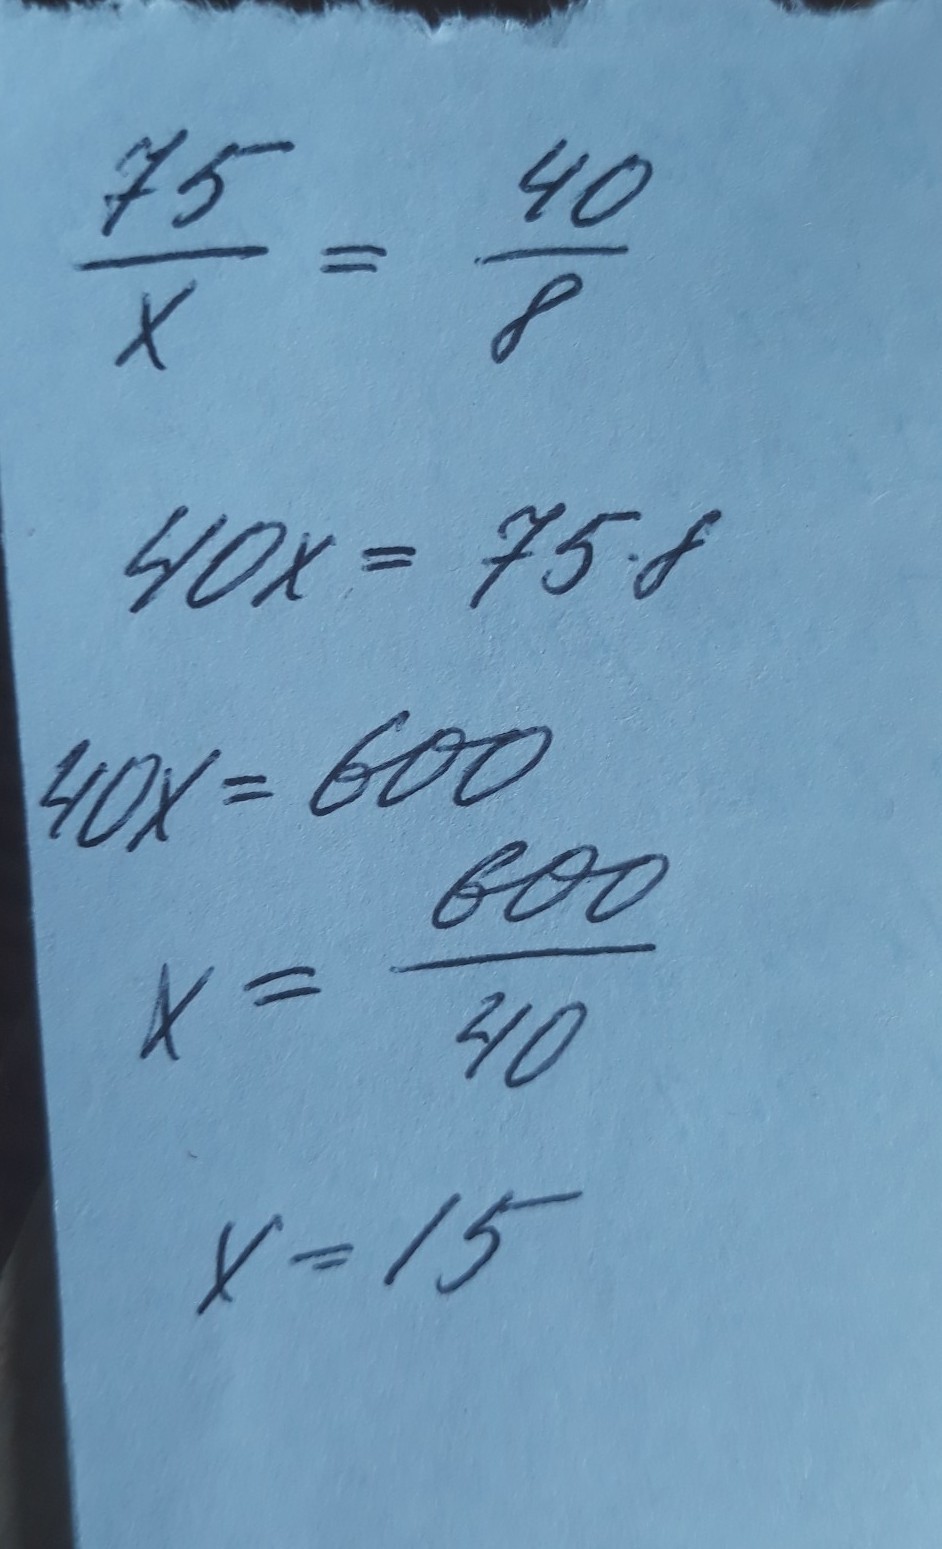 75/x = 40/8
40x = 75·8
40x = 600
x = 600/40
x = 15